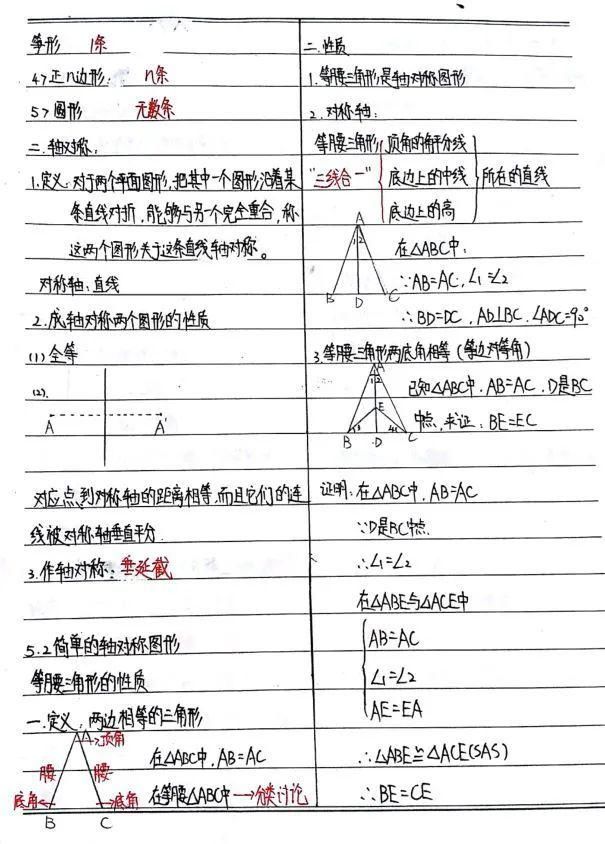 筝形 1条
4>正n边形: n条
5>圆形 无数条
二.轴对称:
1.定义:对于两个平面图形,把其中一个图形沿着某
条直线对折,能够与另一个完全重合,称
这两个图形关于这条直线轴对称。
对称轴:直线
2.成轴对称两个图形的性质
(1)全等
(2).
A A'
对应点到对称轴的距离相等,而且它们的连
线被对称轴垂直平分.
3.作轴对称:垂延截
5.2简单的轴对称图形
等腰三角形的性质
一.定义:两边相等的三角形
A →顶角
腰 腰
在△ABC中,AB=AC
底角← →底角
在等腰△ABC中→分类讨论
B C
二.性质
1.等腰三角形是轴对称图形
2.对称轴:
等腰三角形 顶角的角平分线
"三线合一" 底边上的中线 所在的直线
底边上的高
A
1 2
B D C
在△ABC中:
∵AB=AC,∠1=∠2
∴BD=DC,AD⊥BC,∠ADC=90°
3.等腰三角形两底角相等(等边对等角)
A
1 2
E
B 3 D 4 C
已知△ABC中,AB=AC,D是BC
中点,求证:BE=EC
证明:在△ABC中,AB=AC
∵D是BC中点
∴∠1=∠2
在△ABE与△ACE中
AB=AC
∠1=∠2
AE=EA
∴△ABE≌△ACE(SAS)
∴BE=CE